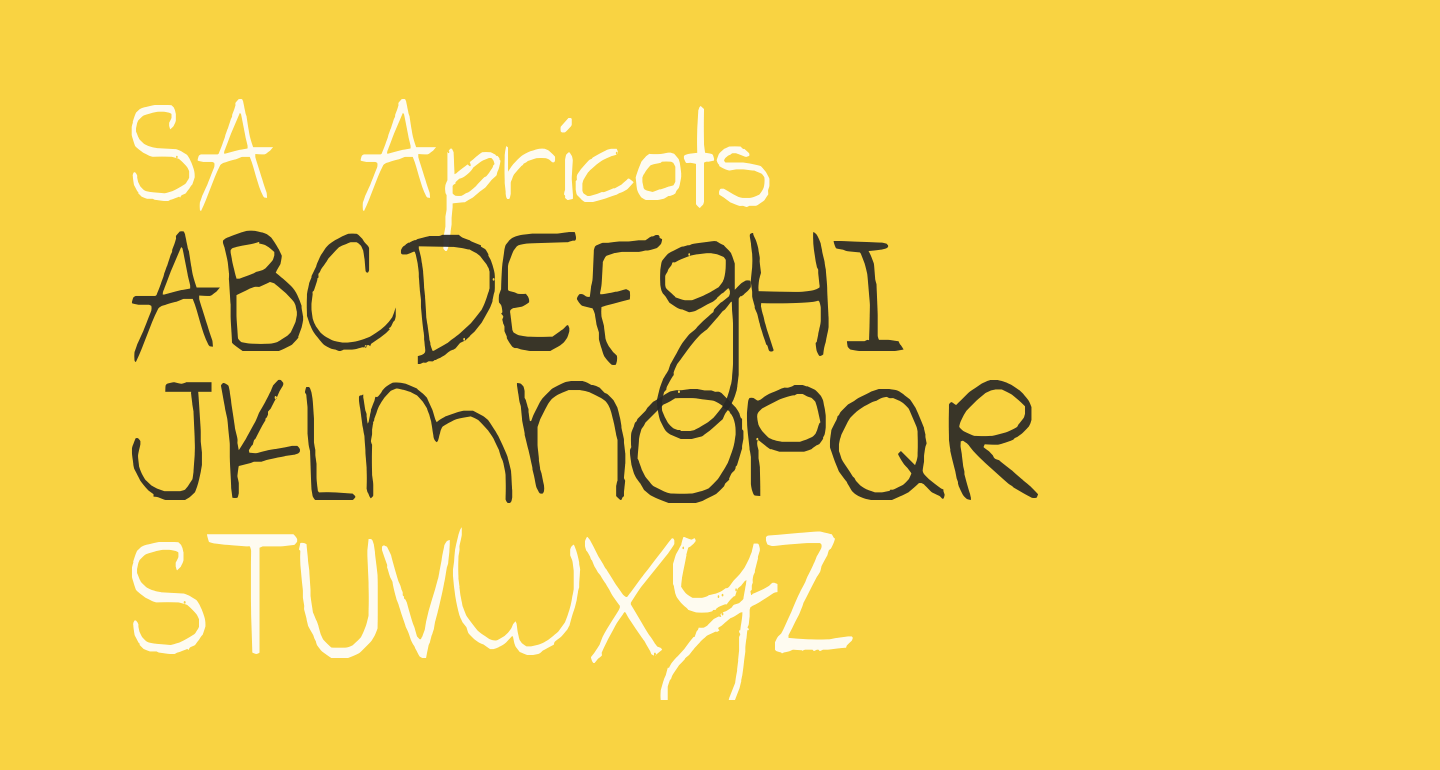 SA Apricots
ABCDEFgHI
JKLmnOPQR
STUVWXyZ